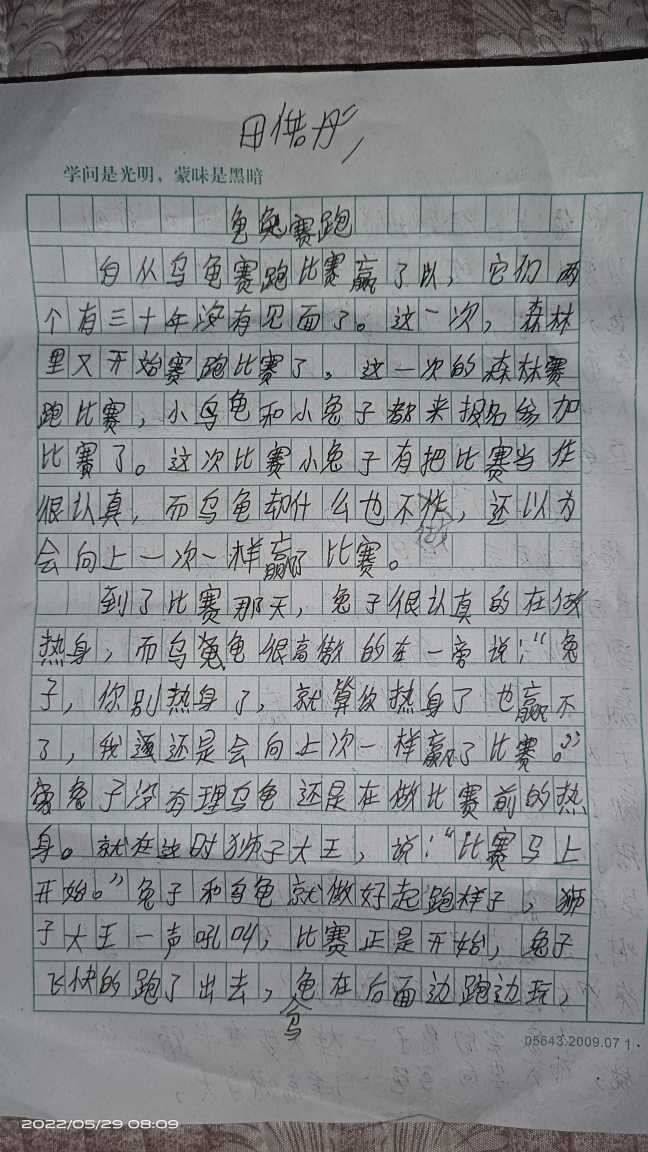 田偕彤
学问是光明，蒙昧是黑暗
龟兔赛跑
自从乌龟赛跑比赛赢了以，它们两
个有三十年没有见面了。这一次，森林
里又开始赛跑比赛了，这一次的森林赛
跑比赛，小乌龟和小兔子都来报名参加
比赛了。这次比赛小兔子有把比赛当作
很认真，而乌龟却什么也不作，还以为
会向上一次一样赢了比赛。
到了比赛那天，兔子很认真的在做
热身，而乌龟很高傲的在一旁说：“兔
子，你别热身了，就算你热身了也赢不
了，我还是会向上次一样赢了比赛。”
兔子没有理乌龟还是在做比赛前的热
身。就在这时狮子大王，说：“比赛马上
开始。”兔子和乌龟就做好起跑样子，狮
子大王一声吼叫，比赛正是开始，兔子
飞快的跑了出去，龟在后面边跑边玩，
乌
05643.2009.07 1
2022/05/29 08:09